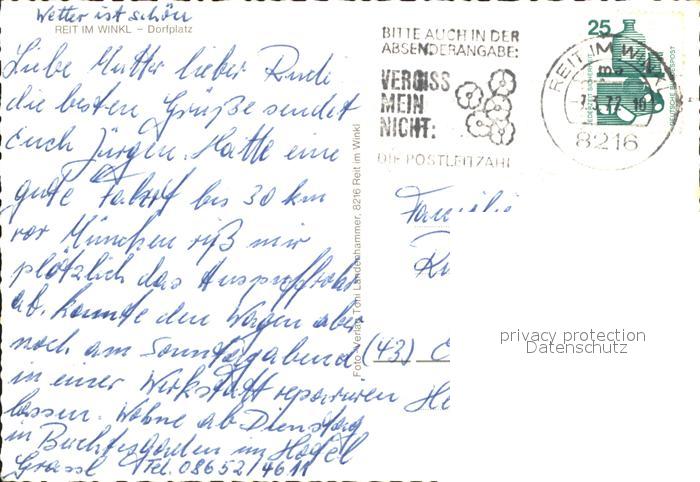 Wetter ist schön
REIT IM WINKL – Dorfplatz
Liebe Mutter lieber Rudi
die besten Grüße sendet
Euch Jürgen. Hatte eine
gute Fahrt bis 30 km
vor München riß mir
plötzlich das Auspuffrohr
ab, konnte den Wagen aber
noch am Sonntagabend
in einer Werkstatt reparieren
lassen. Wohne ab Dienstag
in Buchtesgaden im Hotel
Grassl Tel. 08652/4611
Foto-Verlag Toni Landenhammer, 8216 Reit im Winkl
BITTE AUCH IN DER
ABSENDERANGABE:
VERGISS
MEIN
NICHT:
DIE POSTLEITZAHL
25
REIT IM WINKL
8216
Familie
(43)
privacy protection
Datenschutz